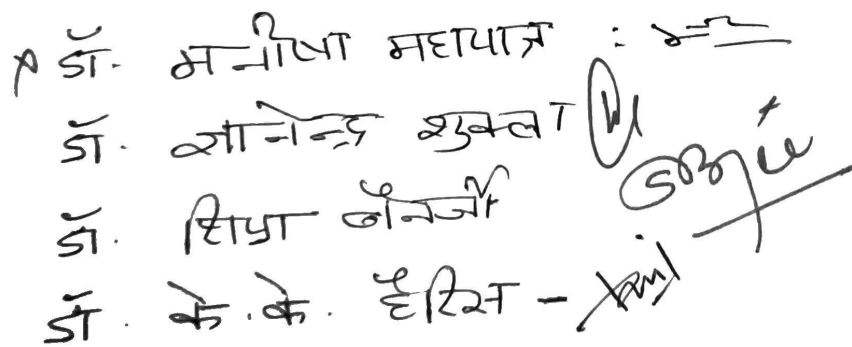 डॉ. मनीषा महापात्र :
डॉ. ज्ञानेन्द्र शुक्ला
डॉ. शिप्रा बॅनर्जी
डॉ. के. के. हॅरिस -